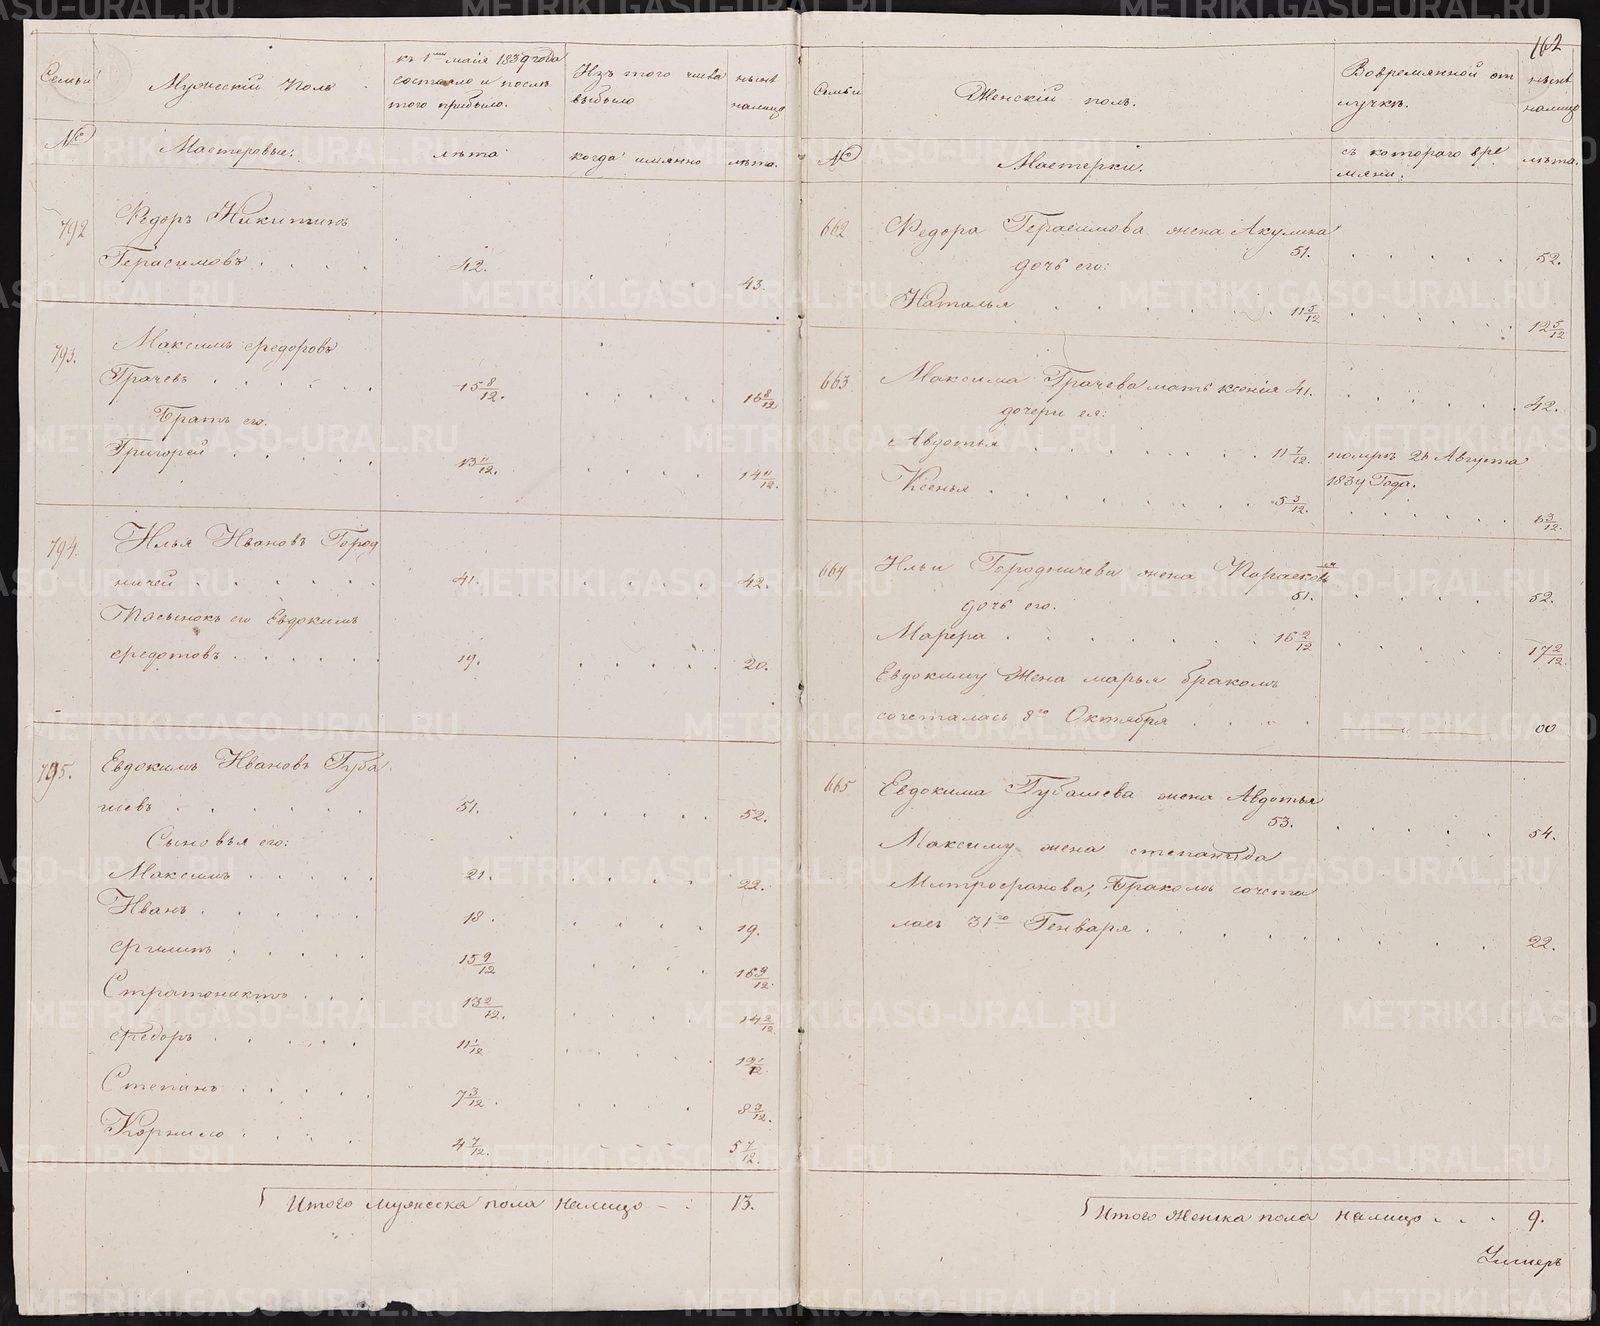 162
Семьи
Мужескій Полъ.
къ 1му маія 1839 года
состояло и послѣ
того прибыло.
Изъ того числа
выбыло
нынѣ
налицо
№
Мастеровые.
лѣта
когда имянно
лѣта.
792
Федоръ Никитинъ
Герасимовъ . . . . 42. . . . . . 43.
793.
Максимъ Федоровъ
Грачевъ . . . . . . 15 8/12. . . . . . 16 8/12
Братъ его.
Григорей . . . . . 13 11/12. . . . . 14 11/12.
794.
Илья Ивановъ Город
ничей . . . . . 41. . . . . . 42.
Пасынокъ его Евдокимъ
Федотовъ . . . . . . 19. . . . . . 20.
795.
Евдокимъ Ивановъ Губа
шевъ . . . . . . 51. . . . . . 52.
Сыновья его:
Максимъ . . . . . 21. . . . . . 22.
Иванъ . . . . . 18. . . . . 19.
Филипъ . . . . . 15 9/12 . . . . 16 9/12.
Стратоникъ . . . 13 2/12. . . . . 14 2/12
Федоръ . . . . . 11 1/12 . . . . 12 1/12.
Степанъ . . . . . 7 3/12. . . . . 8 3/12.
Корнило . . . . 4 7/12. . . . . 5 7/12.
Итого мужеска пола налицо . . 13.
Семьи
Женскій полъ.
Вовремянной от
лучкѣ.
нынѣ
налицо
№
Мастерки.
съ котораго вре
мяни.
лѣта.
662
Федора Герасимова жена Акулина
51. . . . . . 52.
дочь его:
Наталья . . . . . . 11 5/12 . . . . . 12 5/12
663
Максима Грачева мать Ксенія 41. . . . . . 42.
дочери ея:
Авдотья . . . . . . . . 11 7/12. померѣ 26 Августа
1839 Года.
Ксенья . . . . . . . . 5 3/12. . . . . . 6 3/12.
664
Ильи Городничева жена Парасковья
51. . . . . . 52.
дочь его.
Марфа . . . . . . . 16 2/12 . . . . . 17 2/12.
Евдокиму Жена марья бракомъ
сочеталась 8го Октября . . . . 00
665
Евдокима Губашева жена Авдотья
53. . . . . . 54.
Максиму жена степанида
Митрофанова, Бракомъ сочета
лась 31го Генваря . . . . . . . . . 22.
Итого Женска пола налицо . . . 9.